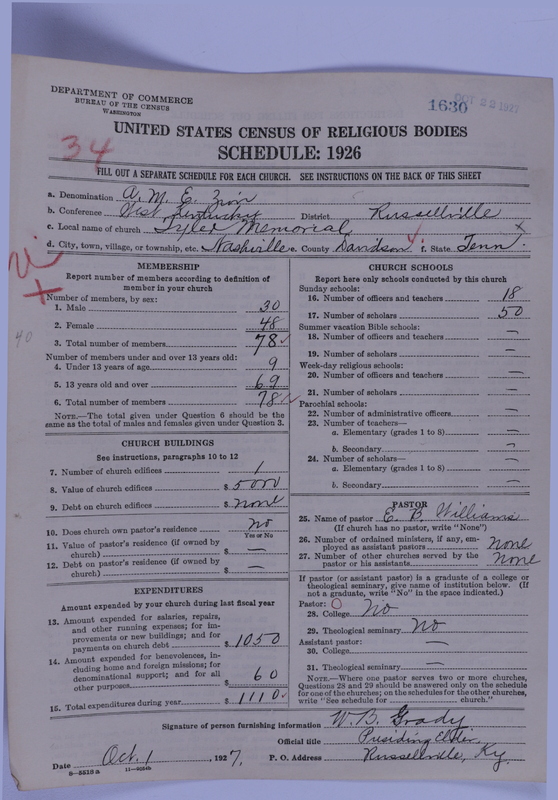 DEPARTMENT OF COMMERCE
BUREAU OF THE CENSUS
WASHINGTON
1630
OCT 22 1927
34
UNITED STATES CENSUS OF RELIGIOUS BODIES
SCHEDULE: 1926
FILL OUT A SEPARATE SCHEDULE FOR EACH CHURCH. SEE INSTRUCTIONS ON THE BACK OF THIS SHEET
a. Denomination A. M. E. Zion
b. Conference West Kentucky District Russellville
c. Local name of church Tyler Memorial
d. City, town, village, or township, etc. Nashville e. County Davidson f. State Tenn.
MEMBERSHIP
Report number of members according to definition of
member in your church
Number of members, by sex:
1. Male 30
2. Female 48
3. Total number of members 78
Number of members under and over 13 years old:
4. Under 13 years of age 9
5. 13 years old and over 69
6. Total number of members 78
NOTE.—The total given under Question 6 should be the
same as the total of males and females given under Question 3.
CHURCH BUILDINGS
See instructions, paragraphs 10 to 12
7. Number of church edifices 1
8. Value of church edifices $ 5000
9. Debt on church edifices $ none
10. Does church own pastor's residence no
Yes or No
11. Value of pastor's residence (if owned by
church) $ —
12. Debt on pastor's residence (if owned by
church) $ —
EXPENDITURES
Amount expended by your church during last fiscal year
13. Amount expended for salaries, repairs,
and other running expenses; for im-
provements or new buildings; and for
payments on church debt $ 1050
14. Amount expended for benevolences, in-
cluding home and foreign missions; for
denominational support; and for all
other purposes $ 60
15. Total expenditures during year $ 1110
CHURCH SCHOOLS
Report here only schools conducted by this church
Sunday schools:
16. Number of officers and teachers 18
17. Number of scholars 50
Summer vacation Bible schools:
18. Number of officers and teachers —
19. Number of scholars —
Week-day religious schools:
20. Number of officers and teachers —
21. Number of scholars —
Parochial schools:
22. Number of administrative officers —
23. Number of teachers—
a. Elementary (grades 1 to 8) —
b. Secondary —
24. Number of scholars—
a. Elementary (grades 1 to 8) —
b. Secondary —
PASTOR
25. Name of pastor E. B. Williams
(If church has no pastor, write "None")
26. Number of ordained ministers, if any, em-
ployed as assistant pastors none
27. Number of other churches served by the
pastor or his assistants none
If pastor (or assistant pastor) is a graduate of a college or
theological seminary, give name of institution below. (If
not a graduate, write "No" in the space indicated.)
Pastor:
28. College No
29. Theological seminary No
Assistant pastor:
30. College —
31. Theological seminary —
NOTE.—Where one pastor serves two or more churches,
Questions 28 and 29 should be answered only on the schedule
for one of the churches; on the schedules for the other churches,
write "See schedule for church."
Signature of person furnishing information W. B. Grady
Official title Presiding Elder
Date Oct. 1, 1927. P. O. Address Russellville, Ky.
8—5513 a 11—9054b